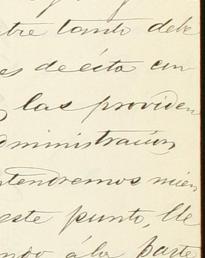 tre tanto debe
es de ésta con
las providen
dministración
ntendremos mien
este punto, lle
ndo á la parte